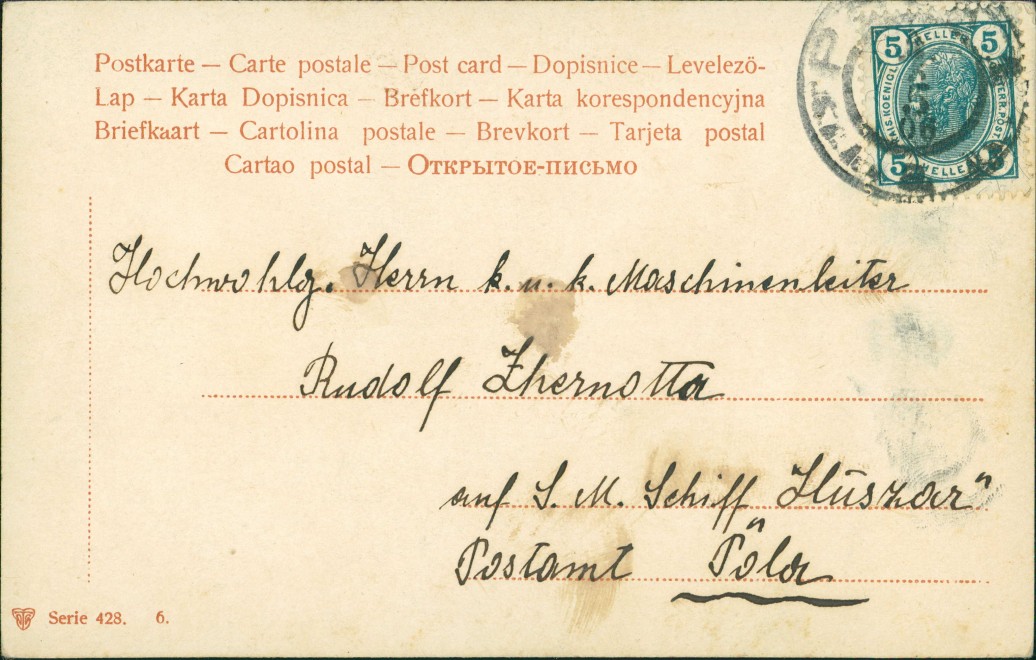 Postkarte — Carte postale — Post card — Dopisnice — Levelező-
Lap — Karta Dopisnica — Brefkort — Karta korespondencyjna
Briefkaart — Cartolina postale — Brevkort — Tarjeta postal
Cartao postal — Открытое-письмо
5 HELLER 5
KAIS. KOENIGL. OESTERR. POST
5 HELLER 5
06
Hochwohlg. Herrn k. u. k. Maschinenleiter
Rudolf Zhernotta
auf S. M. Schiff „Huszar“
Postamt Pola
Serie 428. 6.